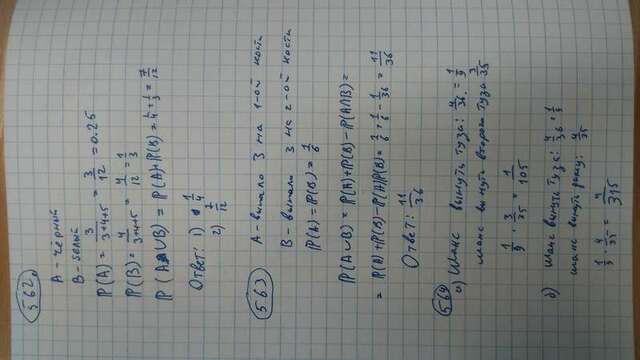 562
А - чёрный
В - белый
P(A) = 3/(3+4+5) = 3/12 = 0.25
P(B) = 4/(3+4+5) = 4/12 = 1/3
P(A∪B) = P(A)+P(B) = 1/4 + 1/3 = 7/12
Ответ: 1) 1/4
2) 7/12
563
А - выпало 3 на 1-ой кости
В - выпало 3 на 2-ой кости
P(A) = P(B) = 1/6
P(A∪B) = P(A)+P(B)-P(A∩B) =
= P(A)+P(B)-P(A)P(B) = 1/6 + 1/6 - 1/36 = 11/36
Ответ: 11/36
564
а) Шанс вынуть туза: 4/36 = 1/9
шанс вынуть второго туза 3/35
1/9 · 3/35 = 1/105
б) шанс вынуть туза: 4/36 = 1/9
шанс вынуть даму: 4/35
1/9 · 4/35 = 4/315